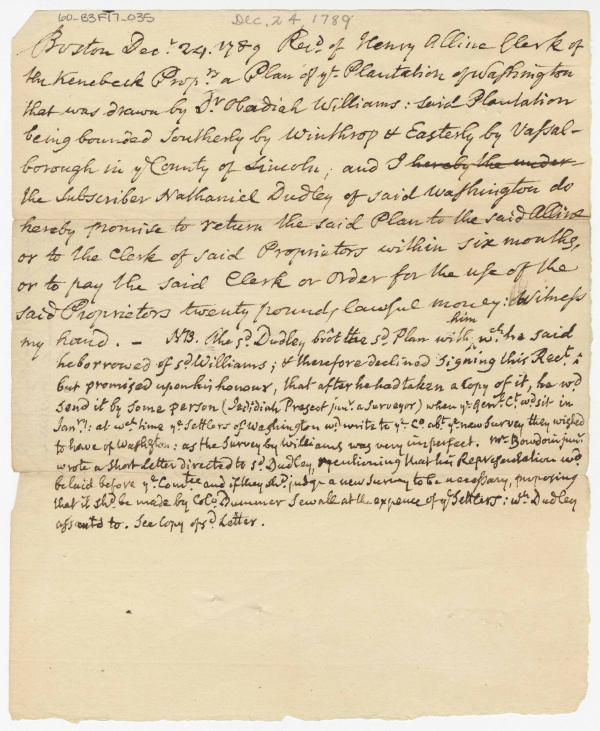 60-B3F17-035
Dec. 24, 1789
Boston Decr. 24. 1789 Recd. of Henry Alline Clerk of
the Kenebeck Proprs. a Plan of ye. Plantation of Washington
that was drawn by Dr Obadiah Williams: said Plantation
being bounded Southerly by Winthrop & Easterly by Vassal-
borough in ye County of Lincoln; and I hereby the under
the Subscriber Nathaniel Dudley of said Washington do
hereby promise to return the said Plan to the said Alline
or to the Clerk of said Proprietors within six months,
or to pay the said Clerk or Order for the use of the
said Proprietors twenty pounds lawful money: Witness
my hand. – NB. The sd. Dudley brôt the sd. Plan with him, wch. he said
he borrowed of sd Williams; & therefore declined signing this Rect. :
but promised upon his honour, that after he had taken a Copy of it, he wod
send it by some person (Jedidiah Prescot junr. a Surveyor) when ye. Genl. Ct. wd sit in
Jany.: at wch time ye Settlers of Washington wd. write to ye. Co. abt. ye. new Survey they wished
to have of Washgton: as the Survey by Williams was very imperfect. Mr. Bowdoin junr.
wrote a short Letter directed to sd. Dudley, mentioning that his Representation wd.
be laid before ye. Comtee and if they shd. judge a new Survey to be necessary, proposing
that it shd. be made by Colo. Dummer Sewall at the expence of ye Settlers: wch Dudley
assented to. See Copy of sd. Letter.